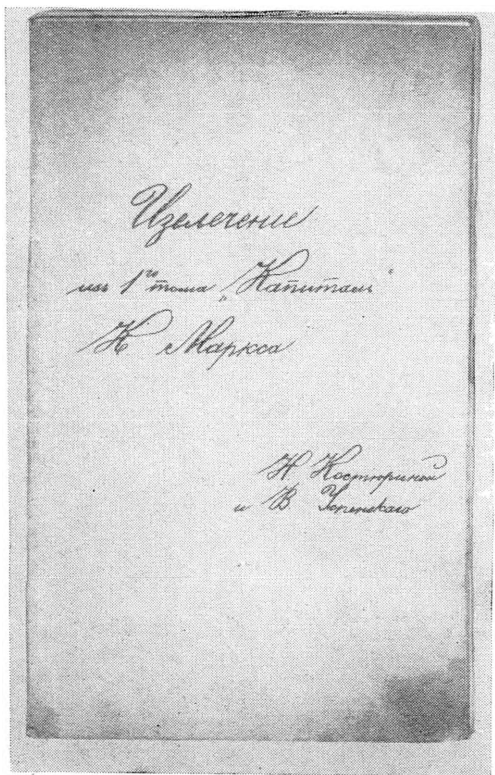 Извлечение
изъ 1го тома „Капиталъ"
К Маркса
Н Костюриной
и В. Успенскаго